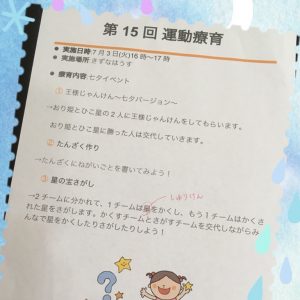 第15回 運動療育
● 実施日時:7月3日(火)16時〜17時
● 実施場所 きずなはうす
● 療育内容:七夕イベント
① 王様じゃんけん〜七夕バージョン〜
→おり姫とひこ星の2人に王様じゃんけんをしてもらいます。
おり姫とひこ星に勝った人は交代していきます。
② たんざく作り
→たんざくにねがいごとを書いてみよう!
③ 星の宝さがし
しゅりけん
→2チームに分かれて、1チームは星をかくし、もう1チームはかくさ
れた星をさがします。かくすチームとさがすチームを交代しながらみ
んなで星をかくしたりさがしたりしよう!
?